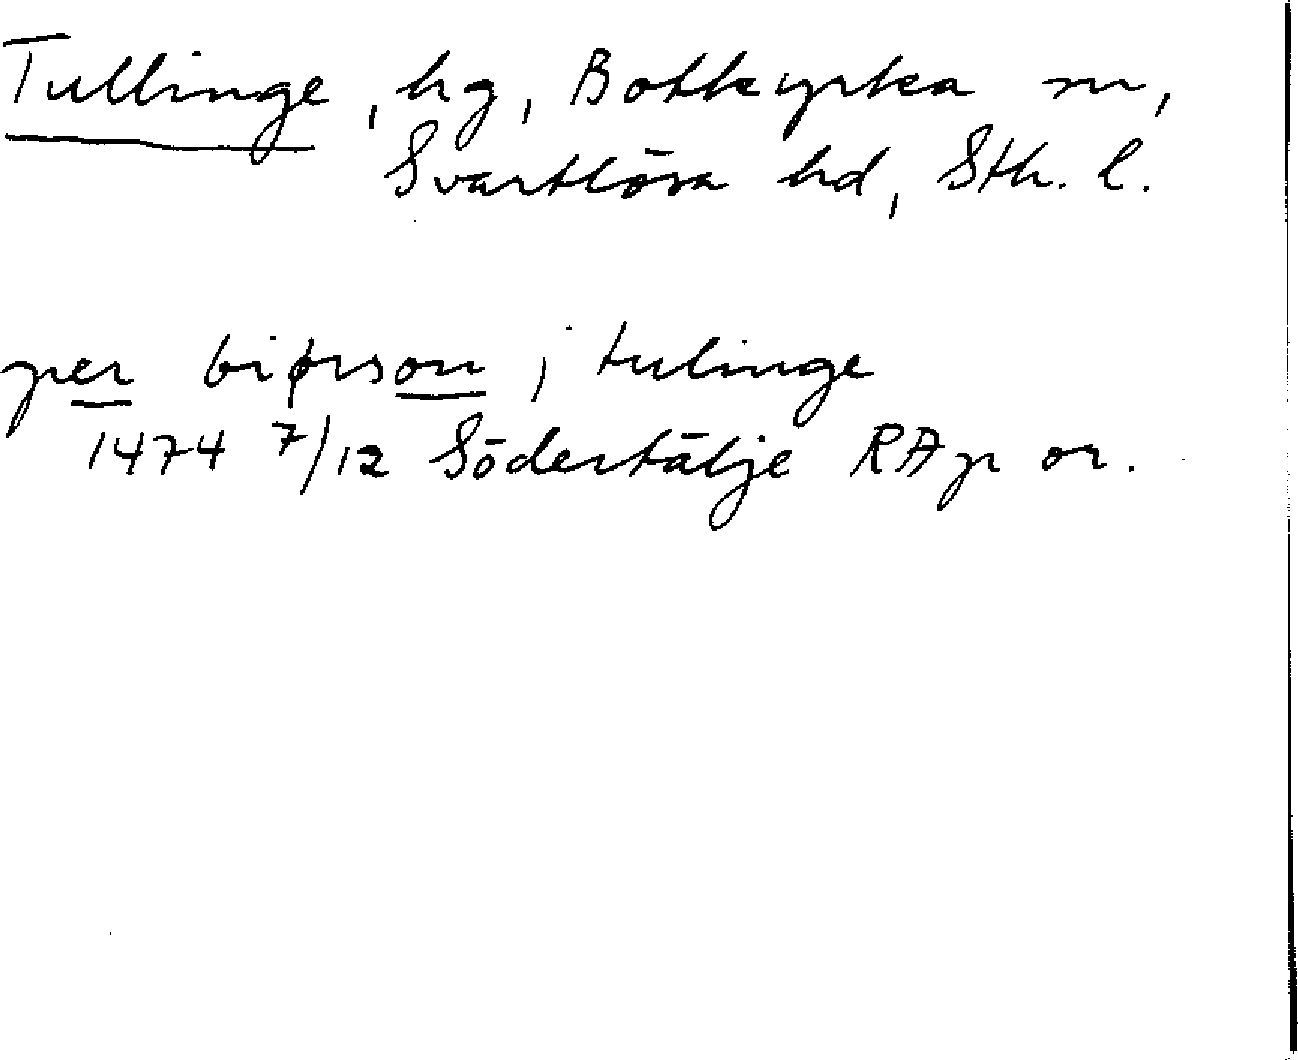 Tullinge, hg, Botkyrka sn,
Svartlösa hd, Sth. l.
per biørson j tulinge
1474 7/12 Södertälje RAp or.